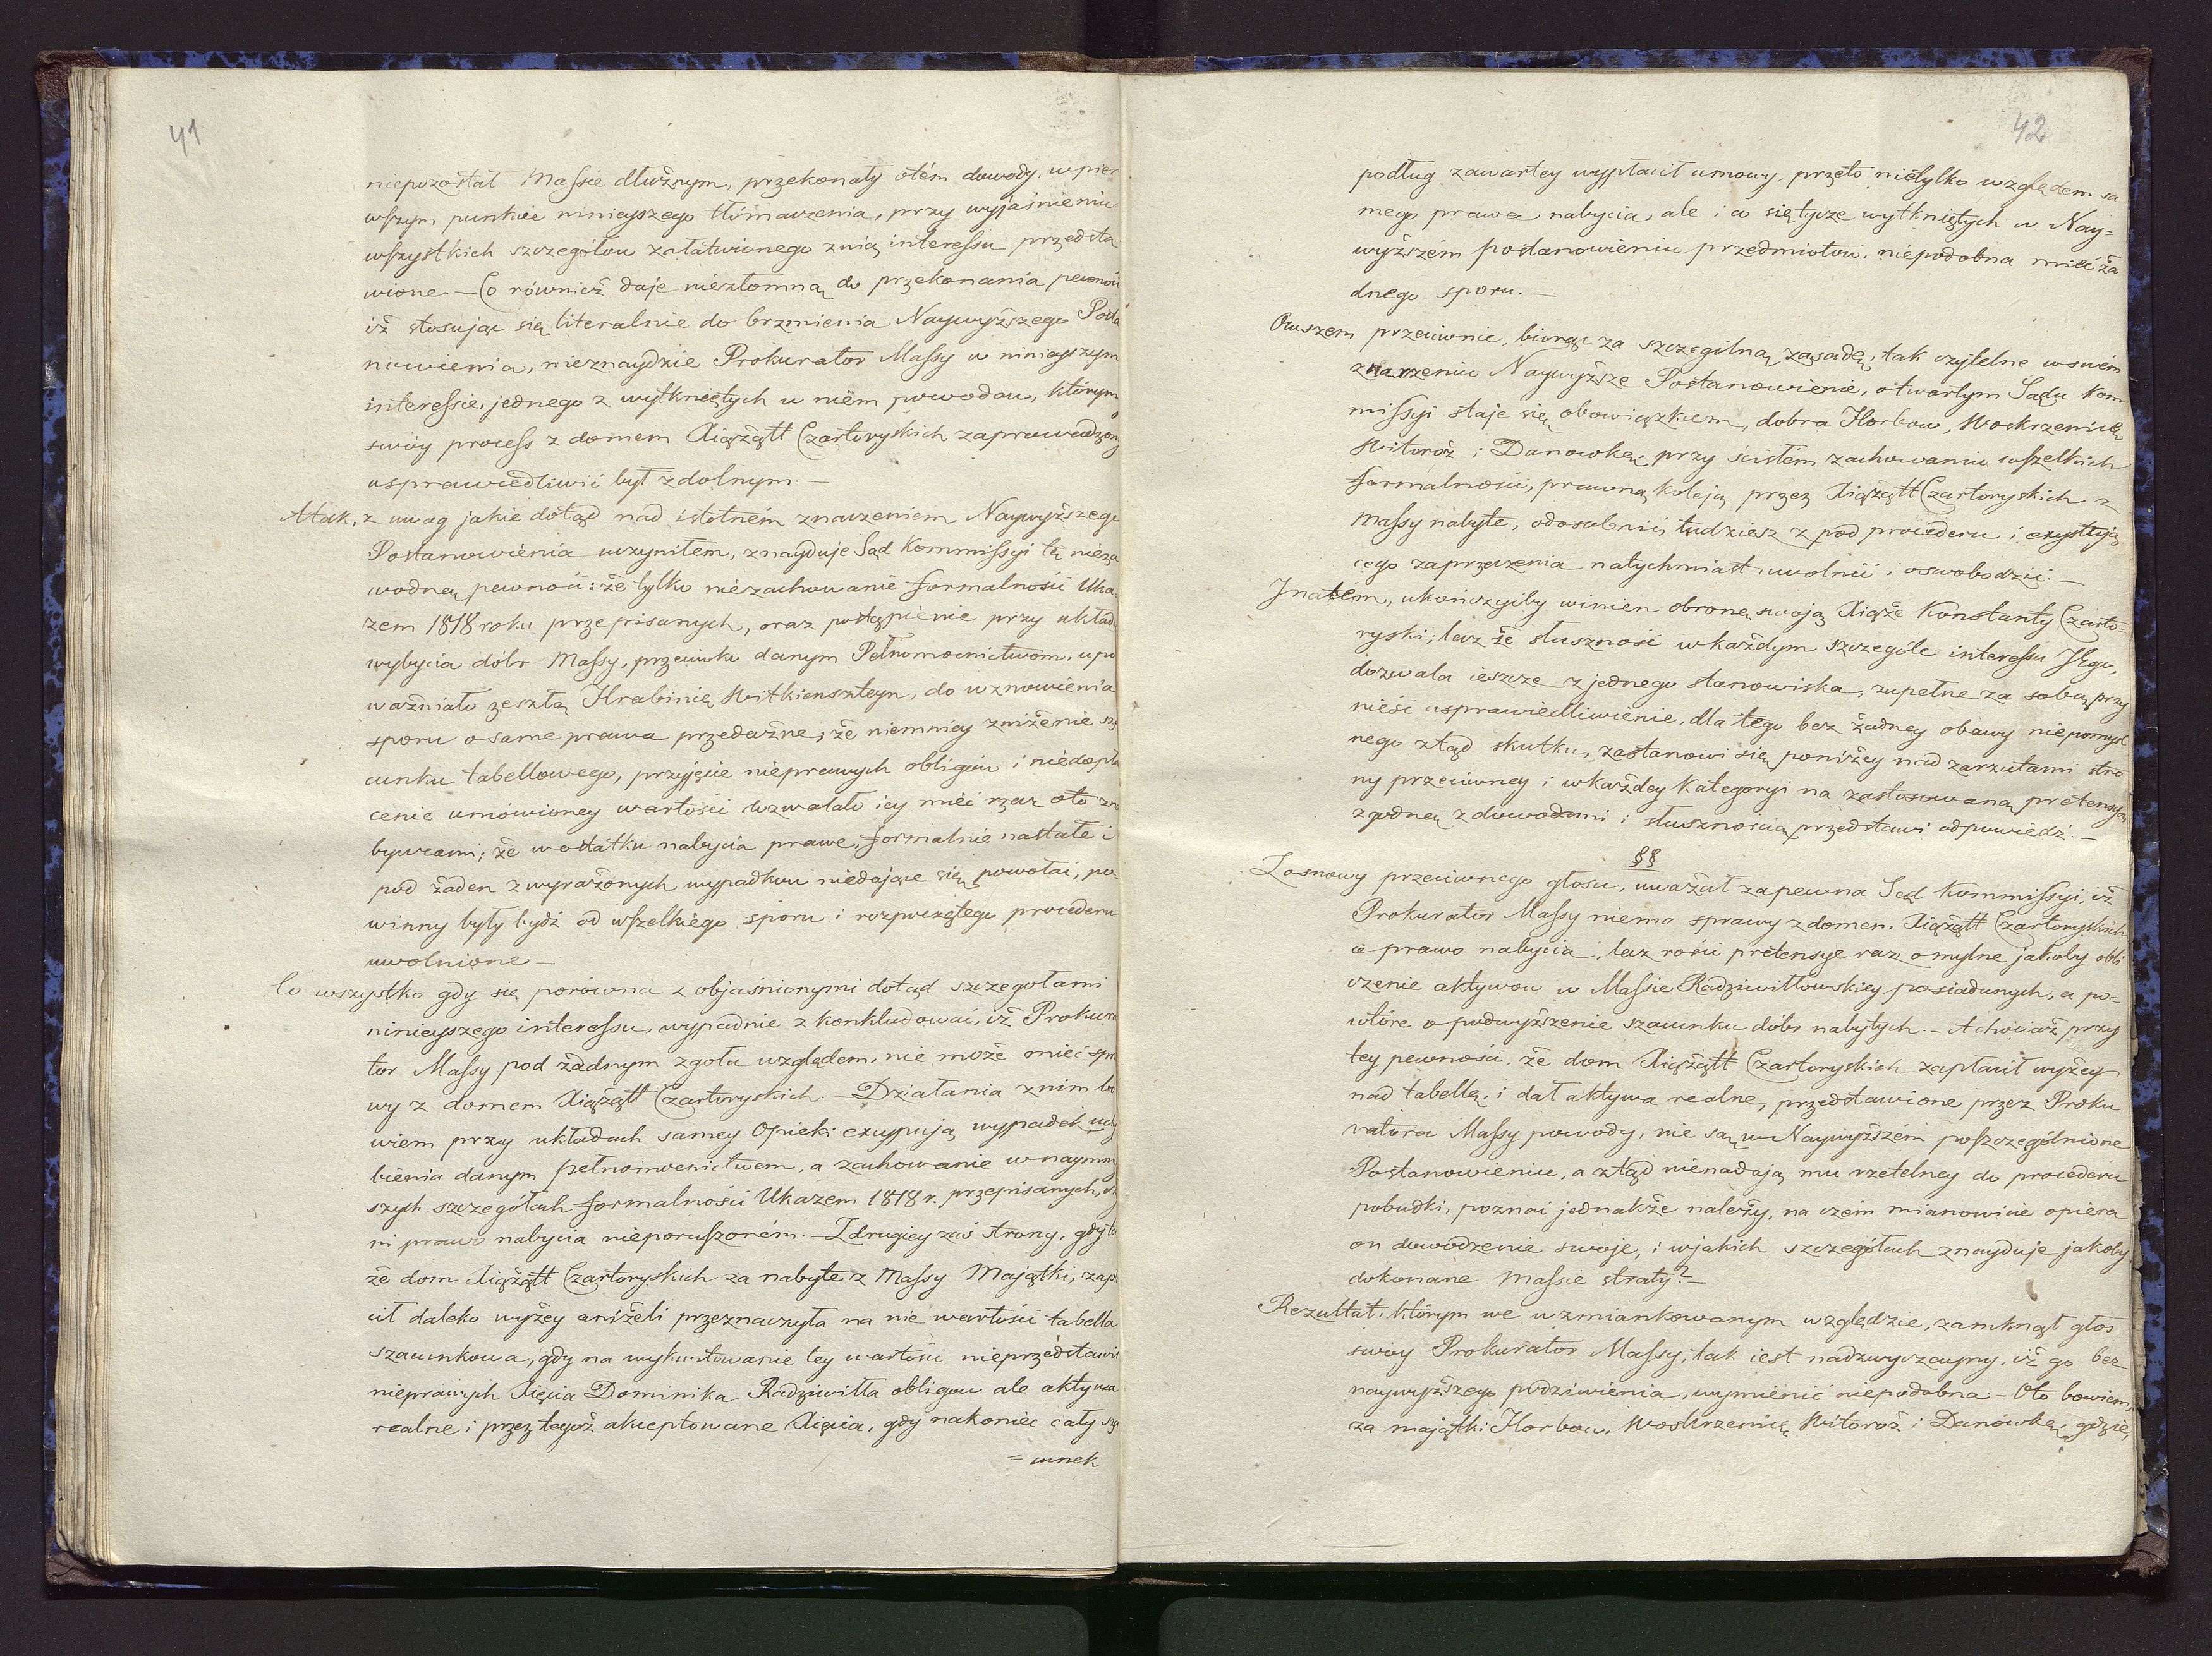 41
niepozostał Massie dłużnym, przekonały otém dowody, w pier
wszym punkcie ninieyszego tłómaczenia, przy wyjaśnieniu
wszystkich szczegółow załatwionego z nią interessu przedsta
wione. — Co również daje niezłomną do przekonania pewność
iż stosując się literalnie do brzmienia Naywyższego Posta
nowienia, nieznaydzie Prokurator Massy w ninieyszym
interessie, jednego z wytkniętych w niém powodow, którym
swóy process z domem Xiążątt Czartoryskich zaprowadzony
usprawiedliwić był zdolnym. —
A tak, z uwag jakie dotąd nad istotném znaczeniem Naywyższego
Postanowienia uczyniłem, znayduje Sąd Kommissyi tę nieza
wodną pewność: że tylko niezachowanie formalności Uka
zem 1818 roku przepisanych, oraz postąpienie przy układ
wybycia dóbr Massy, przeciwko danym Pełnomocnictwom, upo
ważniało zeszłą Hrabinię Witkenszteyn, do wznowienia
sporu o same prawa przedażne, że niemniey zniżenie sza
cunku tabellowego, przyjęcie nieprawych obligów i niedopła
cenie umówioney wartości dozwalało iey mieć rzecz oto z na
bywcami; że w ostatku nabycia prawe, formalnie nastałe i
pod żaden z wyrażonych wypadkow niedające się powołać, po
winny były bydź od wszelkiego sporu i rozpoczętego procederu
uwolnione —
Co wszystko gdy się porówna z objaśnionymi dotąd szczegołami
ninieyszego interessu, wypadnie z konkludować, iż Prokura
tor Massy pod żadnym zgoła względem, nie może mieć spra
wy z domem Xiążątt Czartoryskich. — Działania z nim bo
wiem przy układach samey Opieki exypują wypadek uchy
bienia danym pełnomocnictwom, a zachowanie w naymniey
szych szczegółach formalności Ukazem 1818 r. przepisanych, czy
ni prawo nabycia nieporuszoném. — Z drugiey zaś strony, gdy to
że dom Xiążątt Czartoryskich za nabyte z Massy Majątki, zapła
cił daleko wyżey aniżeli przeznaczyła na nie wartości tabella
szacunkowa, gdy na wykwitowanie tey wartości nieprzedstawił
nieprawych Xięcia Dominika Radziwiłła obligow ale aktywa
realne i przez tegoż akceptowane Xięcia, gdy nakoniec cały sza
= cunek
42
podług zawartey wypłacił umowy, przęto nietylko względem sa
mego prawa nabycia, ale i co się tycze wytkniętych w Nay=
wyższém postanowieniu przedmiotow, niepodobna mieć ża
dnego sporu. —
Owszem przeciwnie, biorąc za szczególną zasadę, tak czytelne w swém
znaczeniu Naywyższe Postanowienie, otwartym Sądu Kom
missyi staje się obowiązkiem, dobra Horbow, Woskrzenicę
Witoroż i Danowkę, przy ścisłém zachowaniu wszelkich
formalności, prawną koleją przez Xiążątt Czartoryskich z
Massy nabyte, odosobnić, tudziesz z pod procederu i exystują
cego zaprzeczenia natychmiast uwolnić i oswobodzić. —
Na tém, ukończyćby winien obronę swoją Xiąże Konstanty Czarto=
ryski; lecz że słuszność w każdym szczególe interessu JEgo,
dozwala ieszcze z jednego stanowiska, zupełne za sobą przy
nieść usprawiedliwienie, dla tego bez żadney obawy niepomysl
nego ztąd skutku, zastanowi się poniżey nad zarzutami stro
ny przeciwney i w każdey kategoryi na zastosowaną pretensyą
zgodną z dowodami i słusznością przedstawi odpowiedź. —
§§
Z osnowy przeciwnego głosu, uważał zapewna Sąd Kommissyi, iż
Prokurator Massy niema sprawy z domem Xiążątt Czartoryskich
o prawo nabycia, lecz rości pretensye raz o mylne jakoby obli
czenie aktywow w Massie Radziwiłłowskiey posiadanych, a po=
wtóre o podwyższenie szacunku dóbr nabytych. — A chociaż przy
tey pewności, że dom Xiążątt Czartoryskich zapłacił wyżey
nad tabellę, i dał aktywa realne, przedstawione przez Proku
ratora Massy powody, nie są w Naywyższém poszczególnione
Postanowieniu, a ztąd nienadają mu rzetelney do procederu
pobudki, poznać jednakże należy, na czém mianowicie opiera
on dowodzenie swoje, i w jakich szczegółach znayduje jakoby
dokonane Massie straty? —
Rezultat, którym we wzmiankowanym względzie, zamknął głos
swóy Prokurator Massy, tak iest nadzwyczayny, iż go bez
naywyższego podziwienia, wymienić niepodobna — Oto bowiem,
za majątki Horbow, Woskrzenicę Witoroż i Danówkę, gdzie,